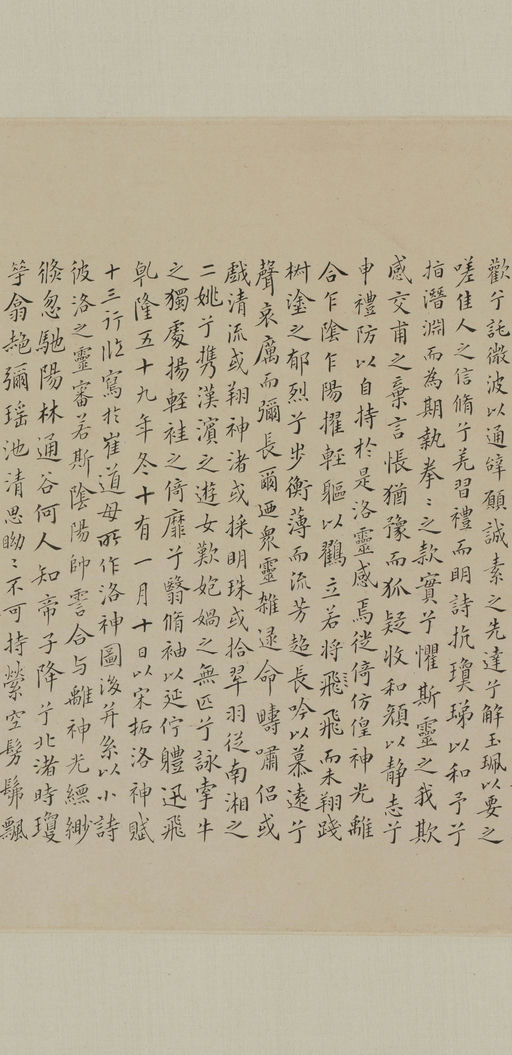 歡兮託微波以通辭願誠素之先達兮解玉珮以要之
嗟佳人之信脩兮羌習禮而明詩抗瓊珶以和予兮
指潛淵而為期執拳〻之款實兮懼斯靈之我欺
感交甫之棄言悵猶豫而狐疑收和顏以静志兮
申禮防以自持於是洛靈感焉徙倚仿偟神光離
合乍陰乍陽擢輕軀以鸛立若將飛飛而未翔踐
椒塗之郁烈兮步衡薄而流芳超長吟以慕遠兮
聲哀厲而彌長爾迺衆靈雜遝命疇嘯侶或
戲清流或翔神渚或採明珠或拾翠羽從南湘之
二姚兮携漢濱之遊女歎妑媧之無匹兮詠牽牛
之獨處揚輕袿之倚靡兮翳脩袖以延佇軆迅飛
乹隆五十九年冬十有一月十日以宋拓洛神賦
十三行臨寫於崔道母所作洛神圖後并系以小詩
彼洛之靈審若斯陰陽帥雲合与離神光縹緲
倏忽馳陽林通谷何人知帝子降兮北渚時瓊
筝翕赩彌瑶池清思眑〻不可持縈空髣髴飄